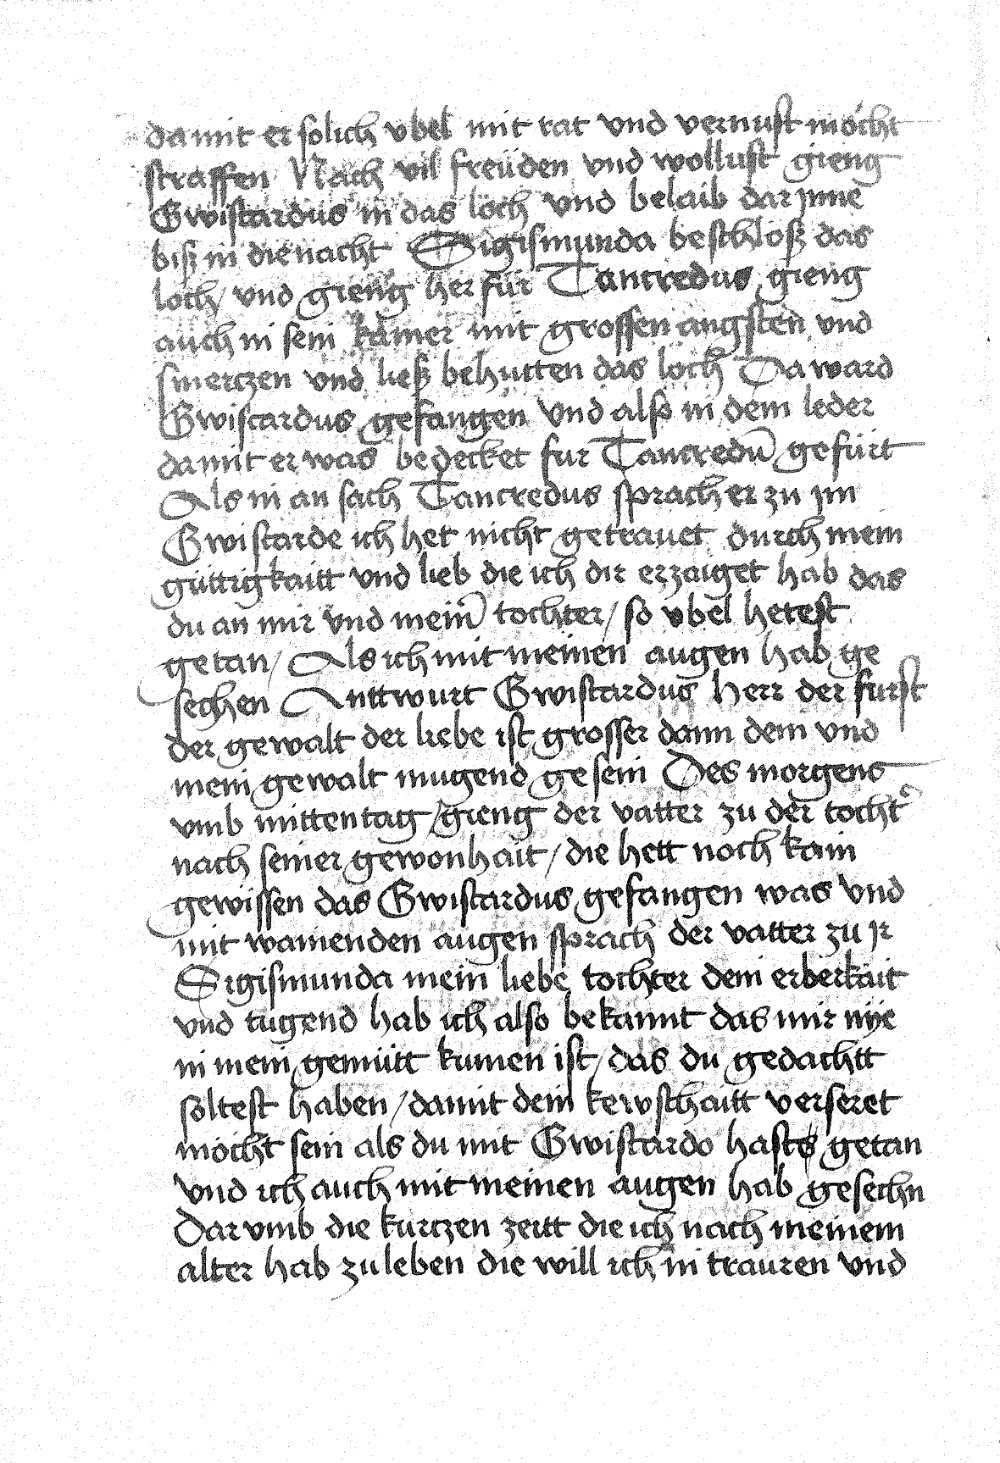 damit er solich vbel mit rat vnd vernufft möcht
straffen Nach vil freüden vnd wollust gieng
Gwistardus in das loch vnd belaib dar jnne
biß in die nacht Sigismunda beschloß das
loch / vnd gieng her für Tancredus gieng
auch in sein kamer mit grossen angsten vnd
smerczen vnd ließ behutten das loch Da ward
Gwistardus gefangen vnd also in dem leder
damit er was bedecket fur Tancredū gefürt
Als in an sach Tancredus sprach er zu jm
Gwistarde ich het nicht getrauet durch mein
güttigkaitt vnd lieb die ich dir erzaiget hab das
du an mir vnd mein̄ tochter / so vbel hetest
getan / Als ich mit meinen augen hab ge
sechen Anttwurt Gwistardus herr der furst
der gewalt der liebe ist grosser dann dein vnd
mein gewalt mugend gesein Des morgens
vmb mittentag / gieng der vatter zu der tocht᷑
nach seiner gewonhait / die hett noch kain
gewissen das Gwistardus gefangen was vnd
mit wainenden augen sprach der vatter zu jr
Sigismunda mein liebe tochter dein erberkait
vnd tugend hab ich also bekannt das mir nÿe
in mein gemütt kumen ist / das du gedachtt
soltest haben / damit dein kewschaitt verseret
möcht sein als du mit Gwistardo hast getan
vnd ich auch mit meinen augen hab gesechn
Dar vmb die kurczen zeitt die ich nach meinem
alter hab zu leben die will ich in trauren vnd